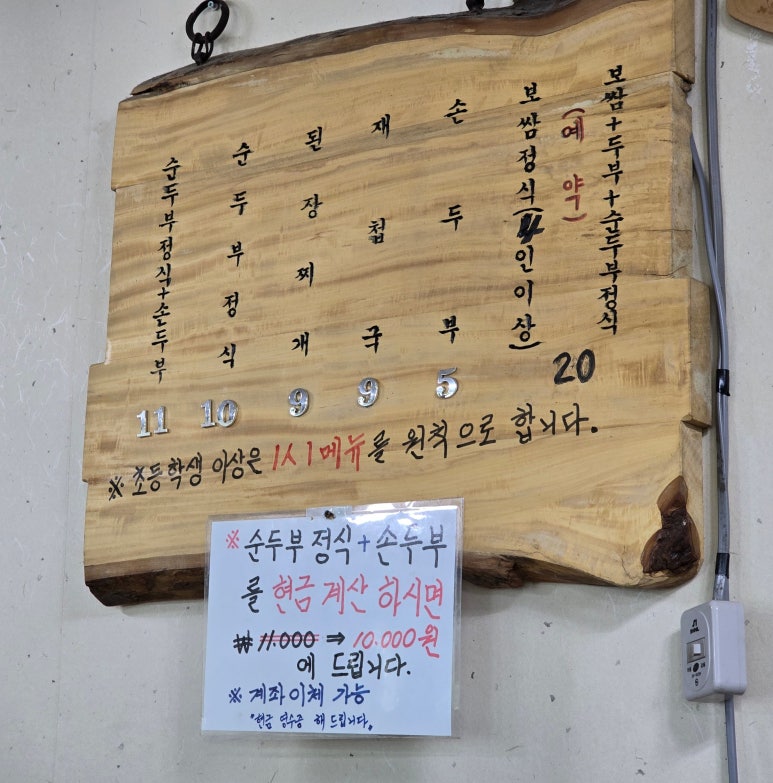 순두부정식+손두부
11
순두부정식
10
된장찌개
9
재첩국
9
손두부
5
보쌈정식(4인이상)
(예약)
보쌈+두부+순두부정식
20
※ 초등학생 이상은 1人1메뉴를 원칙으로 합니다.
※ 순두부 정식 + 손두부
를 현금 계산 하시면
₩ 11.000 ⇒ 10.000원
에 드립니다.
※ 계좌이체 가능
*현금 영수증 해 드립니다.